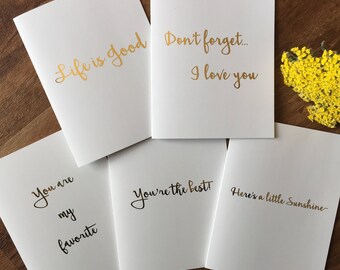 Life is Good
Don't forget...
I love you
You are
my
favorite
You're the best!
Here's a little Sunshine~